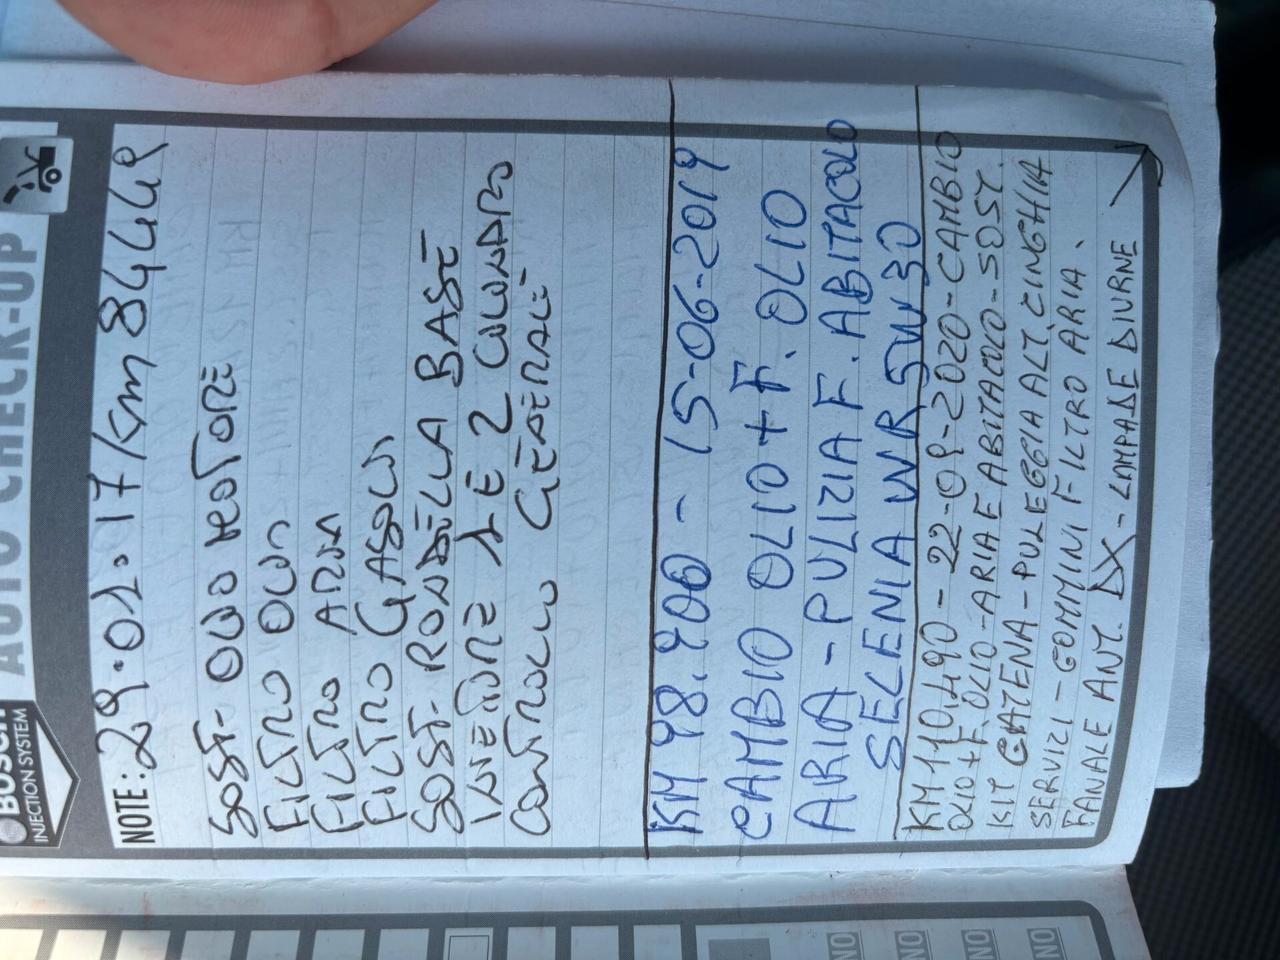 AUTO CHECK-UP
BOSCH
INJECTION SYSTEM
NOTE: 29.01.17/Km 84449
SOST- OLIO MOTORE
FILTRO OLIO
FILTRO ARIA
FILTRO GASOLIO
SOST- RONDELLA BASE
INIETTORE 1 E 2 CILINDRO
CONTROLLO GENERALE
KM 98.900 - 15-06-2019
CAMBIO OLIO + F. OLIO
ARIA - PULIZIA F. ABITACOLO
SELENIA WR 5W30
KM 110.490 - 22-09-2020 - CAMBIO
OLIO + F. OLIO - ARIA E ABITACOLO - SOST.
KIT CATENA - PULEGGIA ALT. CINGHIA
SERVIZI - GOMMINI FILTRO ARIA.
FANALE ANT. DX - LAMPADE DIURNE
NO
NO
NO
NO